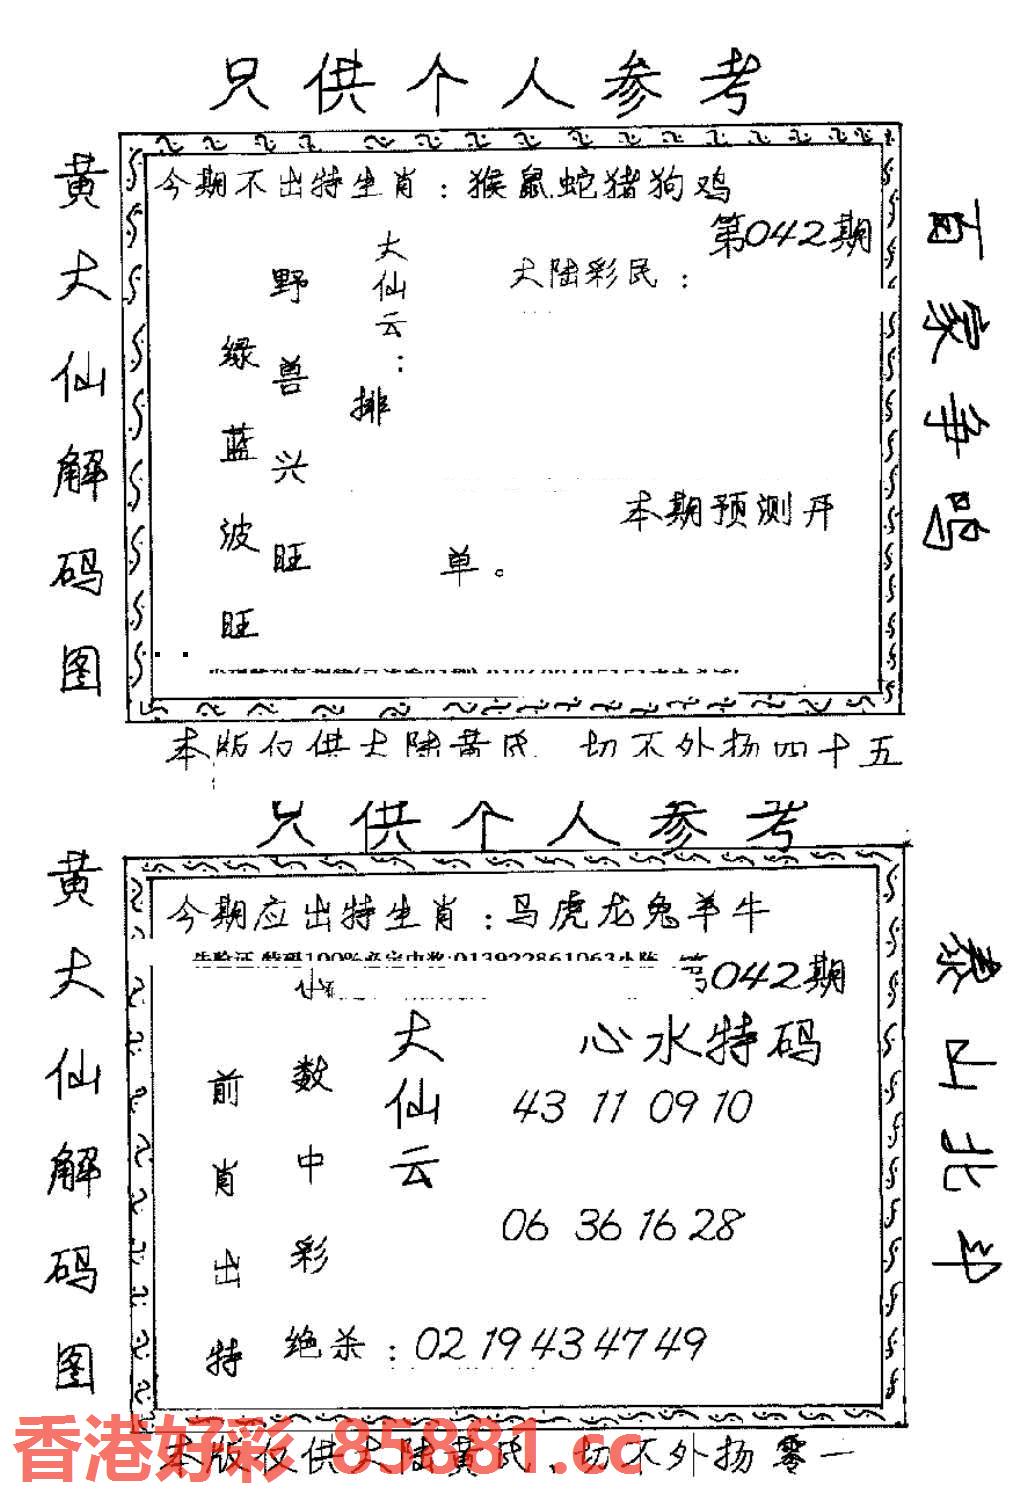 只供个人参考
黄大仙解码图
今期不出特生肖：猴鼠蛇猪狗鸡
第042期
百家争鸣
大陆彩民：
大仙云：
排
野兽兴旺
绿蓝波旺
本期预测开
单。
本版仅供大陆黄民 切不外扬四十五
只供个人参考
黄大仙解码图
今期应出特生肖：马虎龙兔羊牛
042期
泰山北斗
大仙云
心水特码
43 11 09 10
06 36 16 28
数中彩
前肖出特
绝杀：02 19 43 47 49
本版仅供大陆黄民、切不外扬 零一
香港好彩 85881.cc